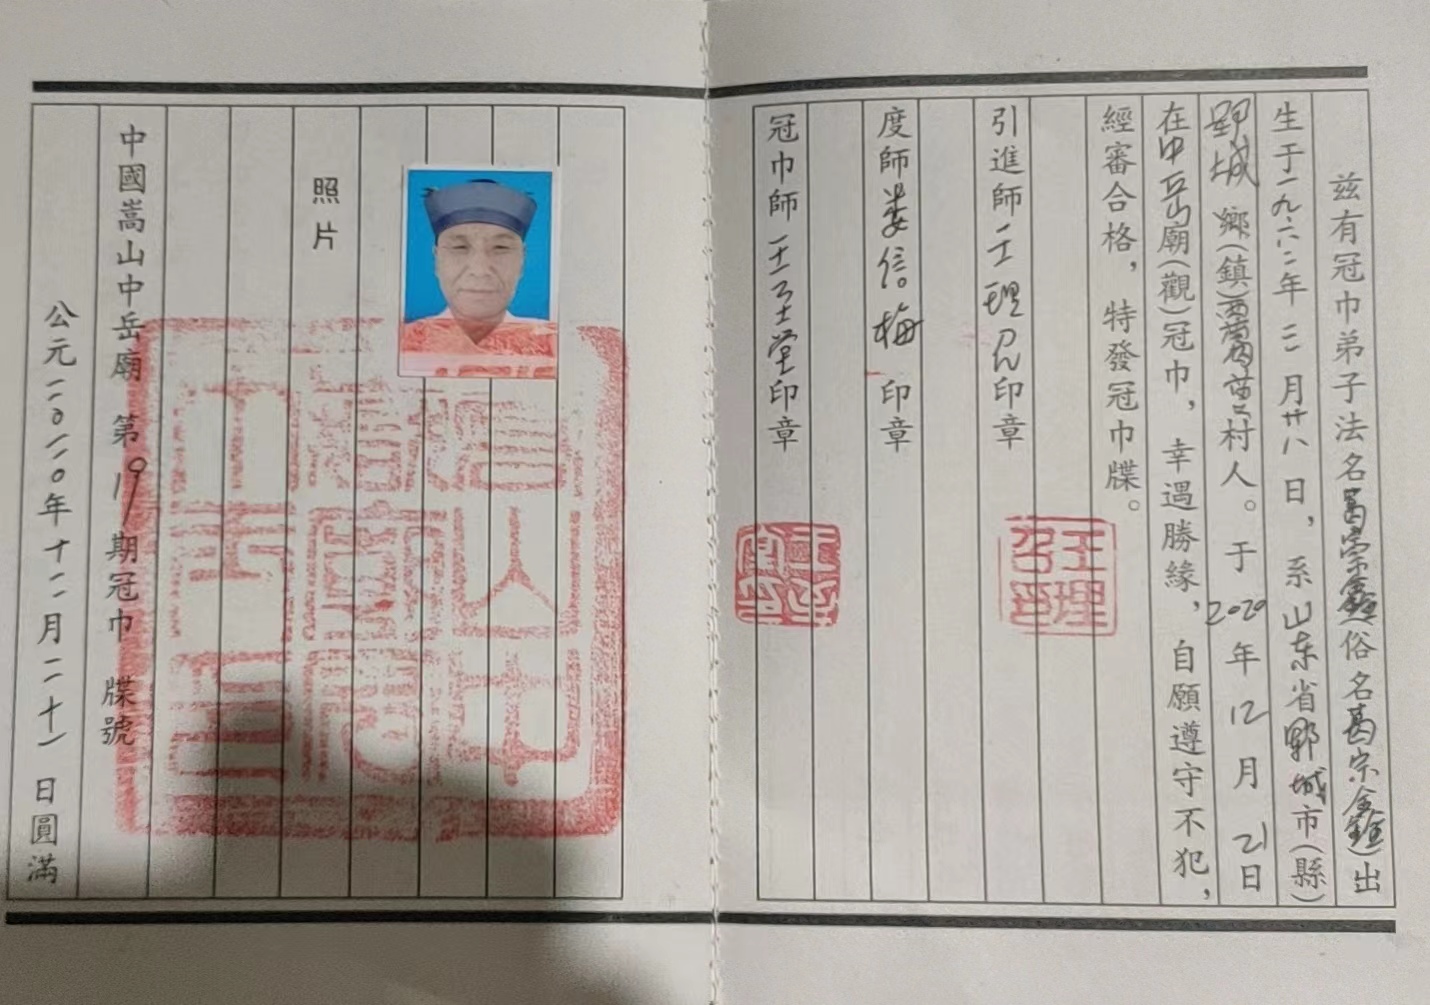 茲有冠巾弟子法名葛崇鑫俗名葛宗鑫出
生于一九六二年二月廿八日，系山东省鄄城市(縣)
鄄城鄉(鎮)西葛茁村人。于2020年12月21日
在中岳廟(觀)冠巾，幸遇勝緣，自願遵守不犯，
經審合格，特發冠巾牒。
引進師王理召印章
度師娄信梅印章
冠巾師王至堂印章
王理召印
照片
中國嵩山中岳廟第19期冠巾牒號
公元二〇二〇年十二月二十一日圓滿